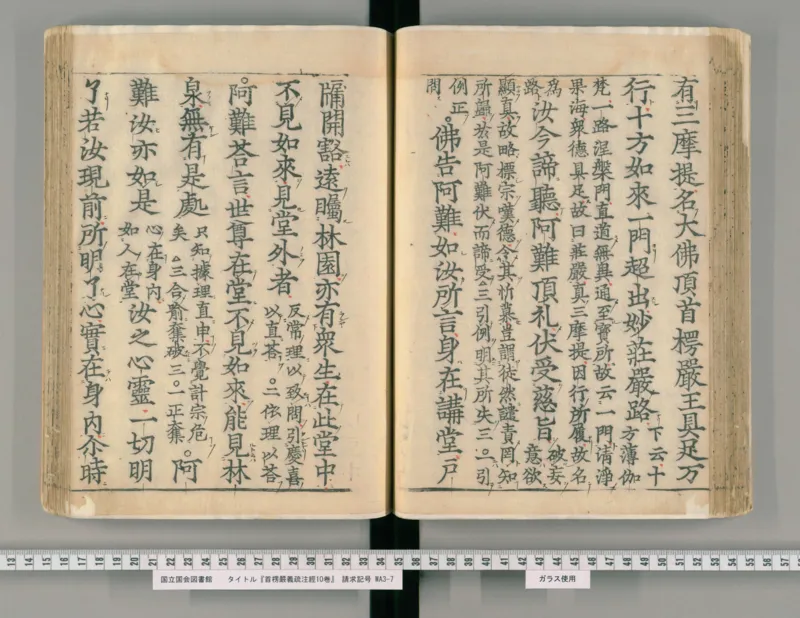 有三摩提名大佛頂首楞嚴王具足万
行十方如來一門超出妙莊嚴路下云十
方薄伽
梵一路涅槃門直道無異通至寶所故云一門清淨
果海衆德具足故曰莊嚴真三摩提因行所履故名
為
路汝今諦聽阿難頂礼伏受慈旨破妄
意欲
顯真故略標宗嘆德令其忻慕豈謂徒然譴責罔知
所歸於是阿難伏而諦受△三引例明其所失三○一引
例正
問○佛告阿難如汝所言身在講堂戸
牖開豁遠矚林園亦有衆生在此堂中
不見如來見堂外者反常理以致問引慶喜
以直荅○二依理以荅
○阿難荅言世尊在堂不見如來能見林
泉無有是處只知據理直申不覺計宗危
矣△三合喻奪破三○一正奪○阿
難汝亦如是心在身内
如人在堂汝之心靈一切明
了若汝現前所明了心實在身内尒時
13 14 15 16 17 18 19 20 21 22 23 24 25 26 27 28 29 30 31 32 33 34 35 36 37 38 39 40 41 42 43 44 45 46 47 48 49 50 51 52 53 54 55 56 57
国立国会図書館 タイトル『首楞嚴義疏注經10巻』 請求記号 WA3-7
ガラス使用